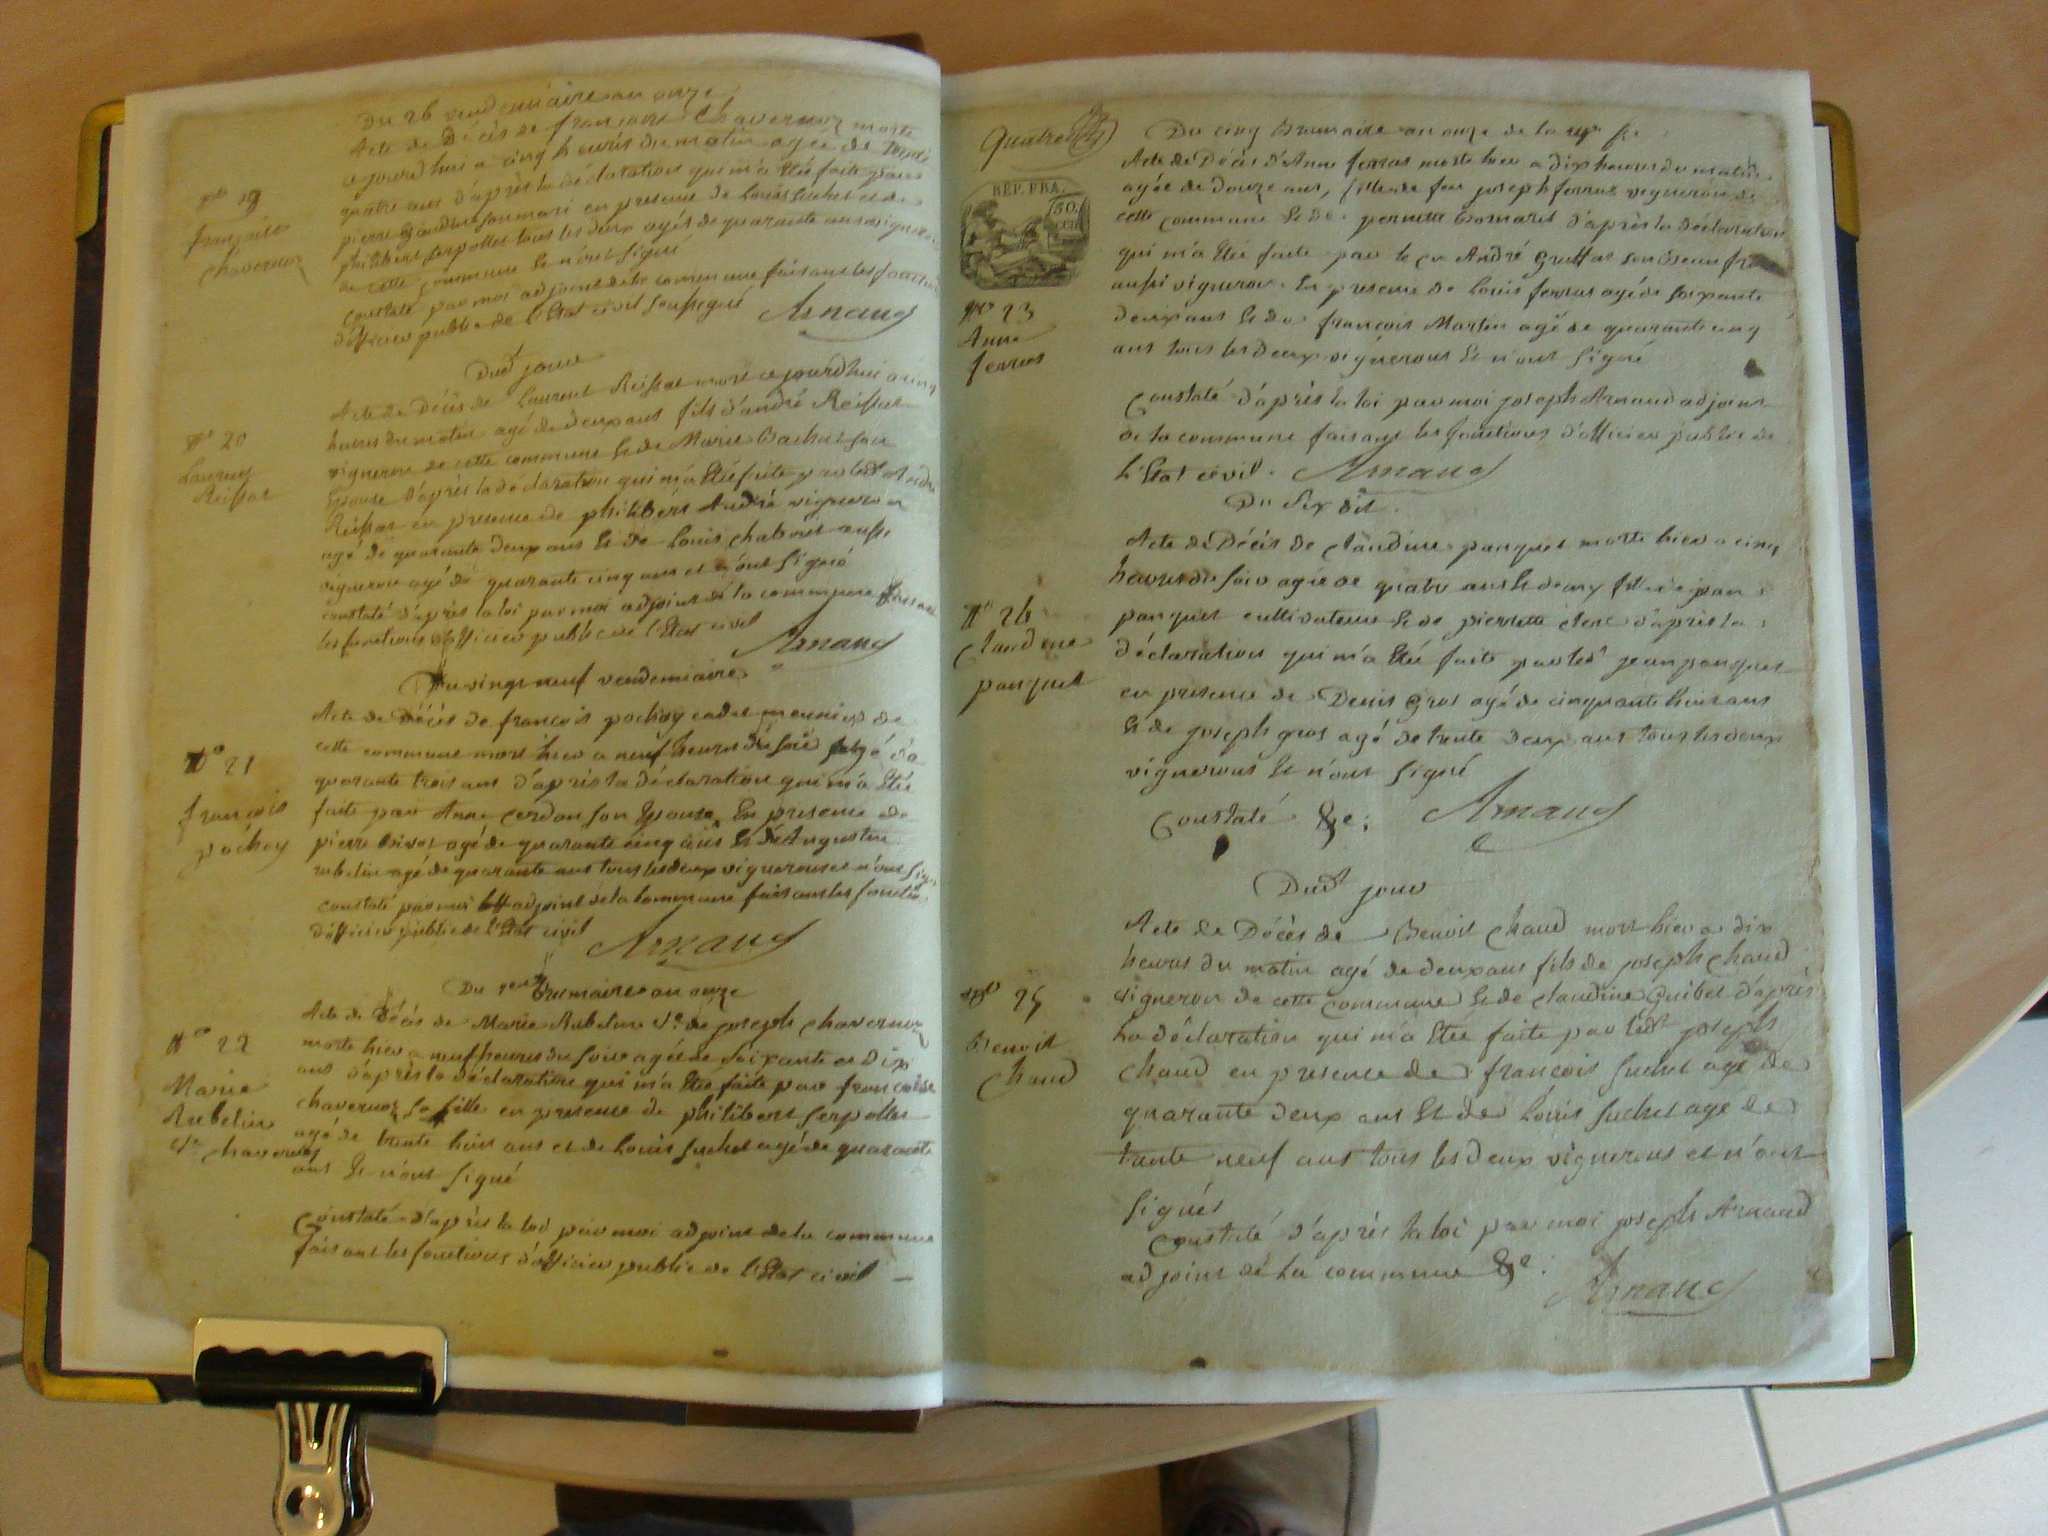 Du 26 vendemiaire an onze
Acte de Décès de françoise Chavernoz morte
ajourdhui a cinq heures du matin agée de trente
quatre ans d'après la déclaration qui m'a été faite par
pierre son mari en presence de Louis Suchet et de
philibert Serpollet tous les deux agés de quarante ans vignerons
de cette commune Et n'ont signé
constaté par moi adjoint de la commune faisant les fonctions
d'officier public de l'Etat civil soussigné Arnaud
N° 19
françoise
chavernoz
Dud. jour
Acte de Décès de Laurent Reissat mort ajourdhui a cinq
heures du matin agé de deux ans fils d'andré Reissat
vigneron de cette commune Et de Marie Bachut son
Epouse d'après la déclaration qui m'a été faite par led. André
Reissat en presence de philibert André vigneron
agé de quarante deux ans Et de Louis chabout aussi
vigneron agé de quarante cinq ans et n'ont signé
constaté d'après la loi par moi adjoint de la commune faisant
les fonctions d'officier public de l'Etat civil Arnaud
N° 20
Laurent
Reissat
Du vingt neuf vendemiaire
Acte de Décès de françois pochoy cadet meunier de
cette commune mort hier a neuf heures du soir agé de
quarante trois ans d'après la déclaration qui m'a Eté
faite par Anne cerdon son Epouse En presence de
pierre agé de quarante cinq ans Et de Augustin
rubelin agé de quarante ans tous les deux vignerons et n'ont signé
constaté par moi adjoint de la commune faisant les fonctions
d'officier public de l'Etat civil Arnaud
N° 21
françois
pochoy
Du brumaire an onze
Acte de Décès de Marie Rubelin Ve. de joseph chavernoz
morte hier a neuf heures du soir agée de soixante et dix
ans d'après la déclaration qui m'a Eté faite par françoise
chavernoz sa fille en presence de philibert Serpollet
agé de trente huit ans et de Louis Suchet agé de quarante
ans Et n'ont signé
Constaté d'après la loi par moi adjoint de la commune
faisant les fonctions d'officier public de l'Etat civil —
N° 22
Marie
Rubelin
Ve. chavernoz
Quatre
REP. FRA.
50.
CEN.
Du cinq Brumaire an onze de la rep. fr.
Acte de Décès d'Anne ferras morte hier a dix heures du matin
agée de douze ans, fille de feu joseph ferras vigneron de
cette commune Et de pernette d'après la déclaration
qui m'a Eté faite par le cn André Gruffat son Beau fr
aussi vigneron En presence de Louis ferras agé de soixante
deux ans Et de françois Martin agé de quarante cinq
ans tous les deux vignerons Et n'ont signé
Constaté d'après la loi par moi joseph Arnaud adjoint
de la commune faisant les fonctions d'officier public de
l'Etat civil. Arnaud
N° 23
Anne
ferras
Du six dit.
Acte de Décès de claudine panquet morte hier a cinq
heures du soir agée de quatre ans Et demy fille de jean
panquet cultivateur Et de pierrette clerc d'après la
déclaration qui m'a Eté faite par led. jean panquet
en presence de Denis gros agé de cinquante huit ans
Et de joseph gros agé de trente deux ans tous les deux
vignerons Et n'ont signé
Constaté &c; Arnaud
N° 24
claudine
panquet
Dud. jour
Acte de Décès de Benoit chaud mort hier a dix
heures du matin agé de deux ans fils de joseph chaud
vigneron de cette commune Et de claudine Guibel d'après
la déclaration qui m'a Eté faite par ledt joseph
chaud en presence de françois suchet agé de
quarante deux ans Et de Louis suchet agé de
trente neuf ans tous les deux vignerons et n'ont
signés
Constaté d'après la loi par moi joseph Arnaud
adjoint de la commune &c. Arnaud
N° 25
Benoit
chaud